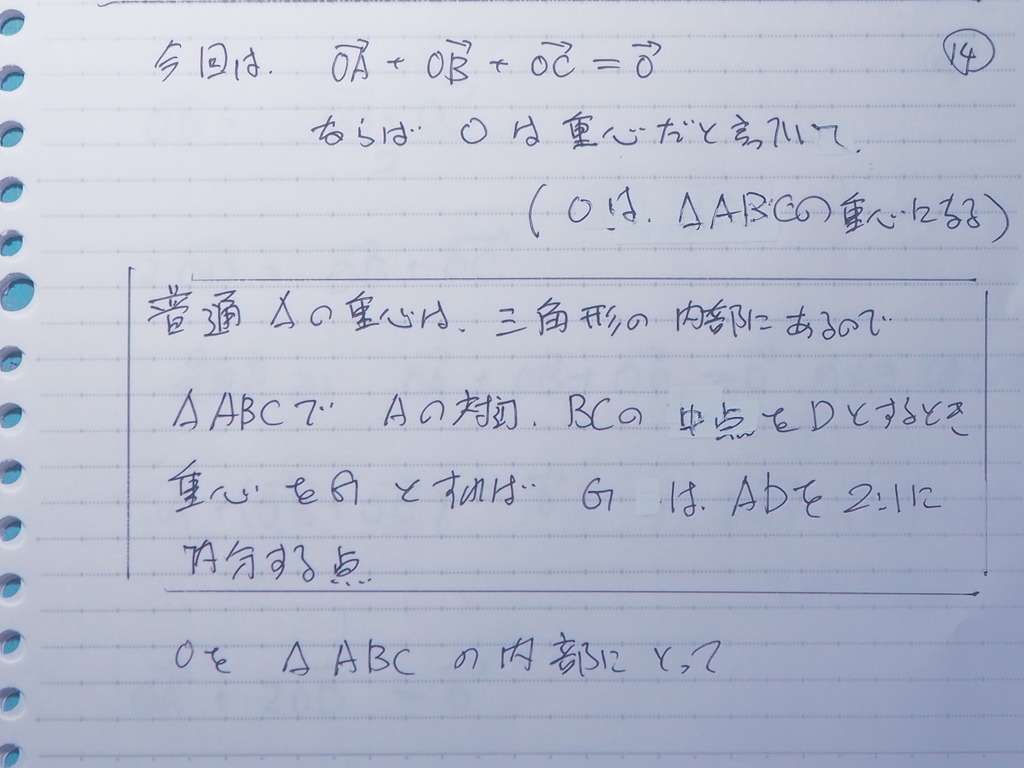 今回は. OA→ + OB→ + OC→ = 0→ ⑭
ならば Oは重心だと言って.
(Oは. △ABCの重心になる)
普通 △の重心は. 三角形の内部にあるので
△ABCで Aの対辺. BCの 中点をDとするとき
重心をGとすれば Gは. ADを2:1に
内分する点
Oを △ABCの内部にとって